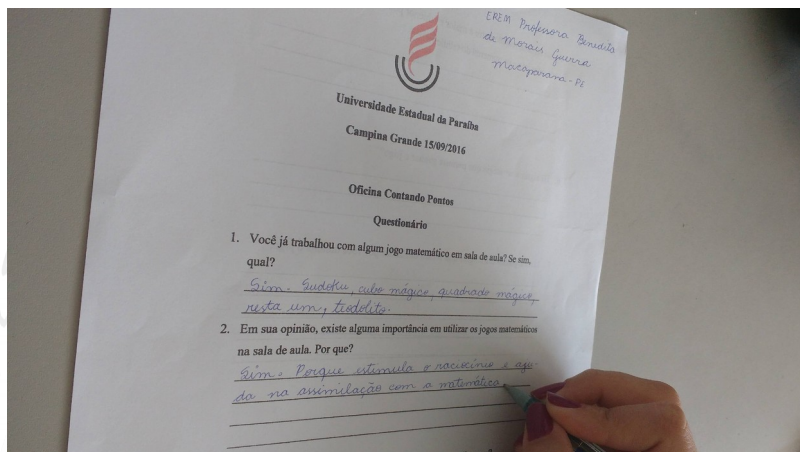 EREM Professora Benedita
de Morais Guerra
Macaparana - PE
Universidade Estadual da Paraíba
Campina Grande 15/09/2016
Oficina Contando Pontos
Questionário
1. Você já trabalhou com algum jogo matemático em sala de aula? Se sim,
qual?
Sim. Sudoku, cubo mágico, quadrado mágico,
resta um, teodolito.
2. Em sua opinião, existe alguma importância em utilizar os jogos matemáticos
na sala de aula. Por que?
Sim. Porque estimula o raciocínio e aju-
da na assimilação com a matemática.